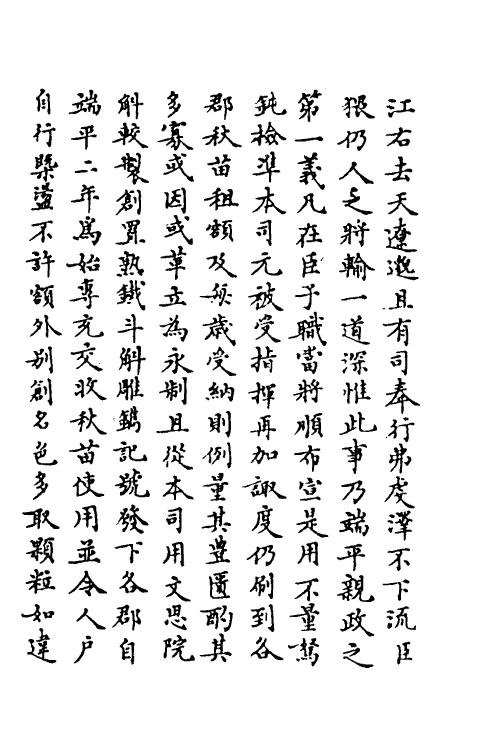 江右去天遼邈且有司奉行弗虔澤不下流臣
猥仍人乏將輸一道深惟此事乃端平親政之
第一義凡在臣子職當將順布宣是用不量駑
鈍檢準本司元被受指揮再加諏度仍刷到各
郡秋苗租額及每歲受納則例量其豐匱酌其
多寡或因或革立為永制且從本司用文思院
斛較製創置熟鐵斗斛雕鐫記號發下各郡自
端平二年為始專充交收秋苗使用並令人户
自行槩盪不許額外别創名色多取顆粒如違